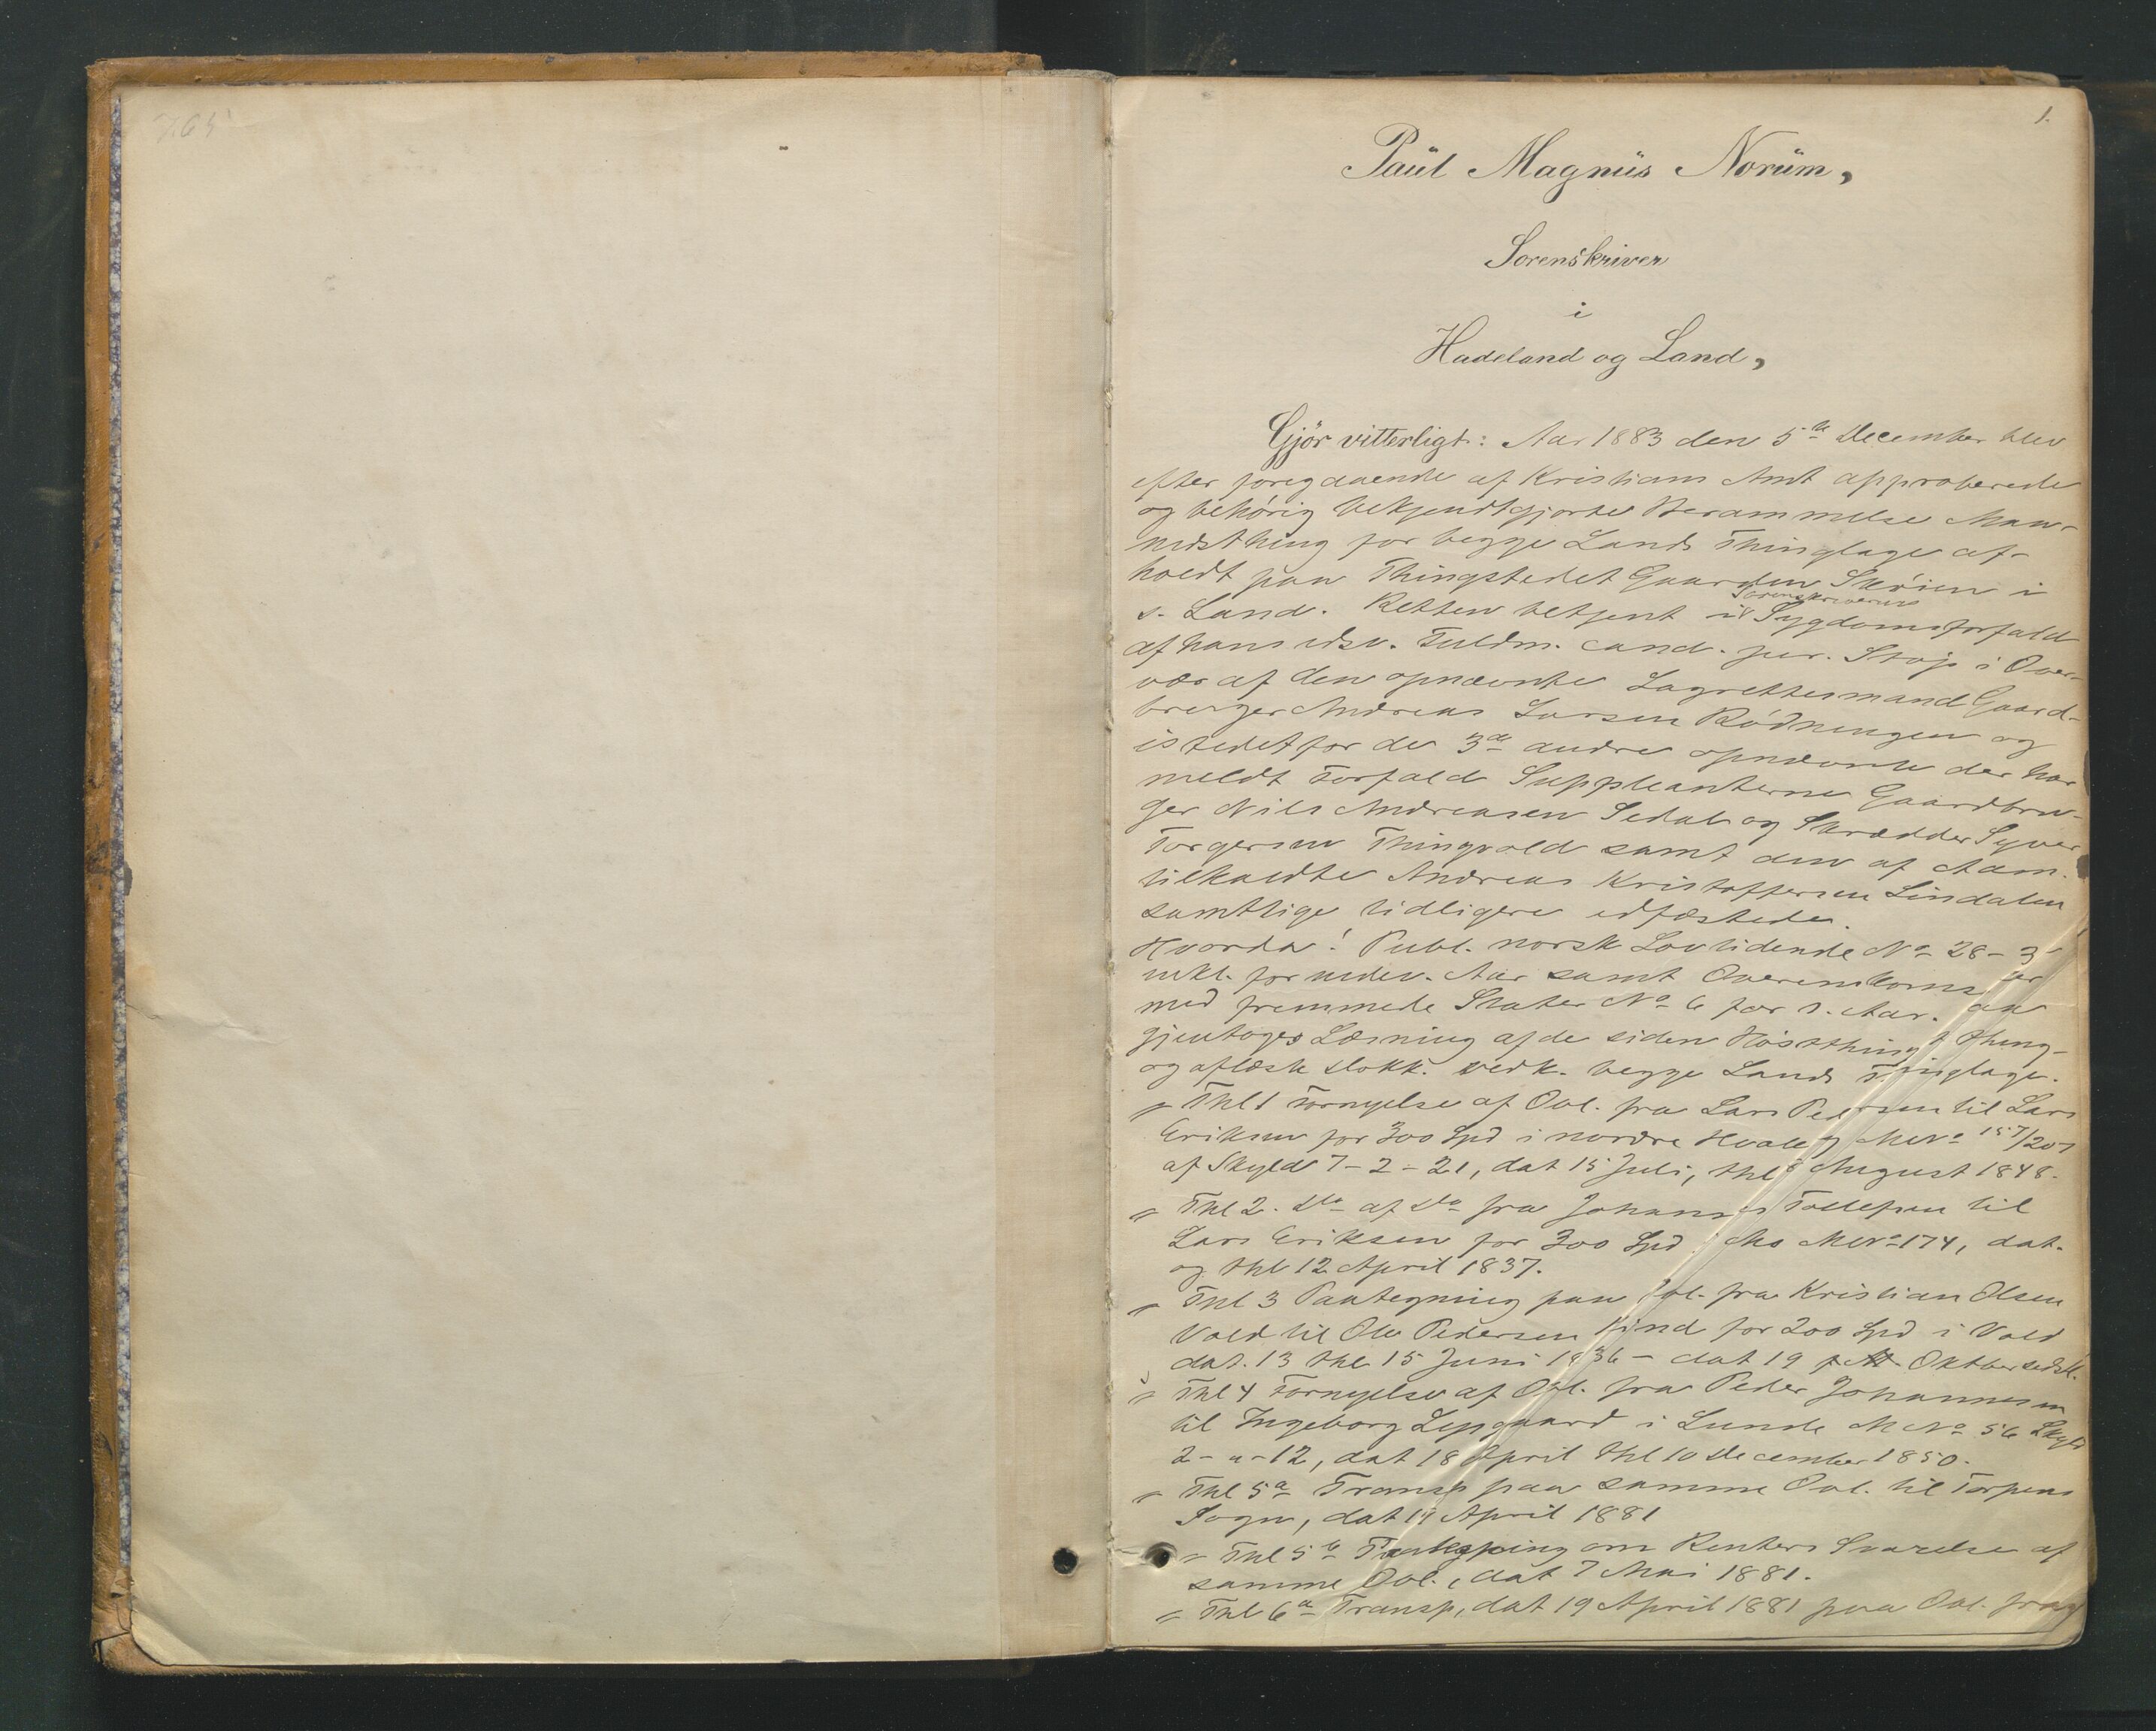 765
1.
Paul Magnus Norum,
Sorenskriver
i
Hadeland og Land,
Gjör vitterligt: Aar 1883 den 5te December blev
efter foregaaende af Kristians Amt approberede
og behörig bekjendtgjorte Berammelse Maa-
nedsthing for begge Lands Thinglage af-
holdt paa Thingstedet Gaarden Sköien i
s. Land. Retten betjent i Sorenskriverens Sygdomsforfald
af hans edsv. Fuldm. cand. jur. Stoji i Over-
vær af den opnævnte Lagrettesmand Gaard-
bruger Andreas Larsen Rödningen og
istedetfor de 3de andre opnævnte der har
meldt Forfald Suppleanterne Gaardbru-
ger Nils Andreasen Sedal og Skrædder Syver
Torgersen Thingvold samt den af Adm.
tilkaldte Andreas Kristoffersen Lindalen
samtlige tidligere edfæstede.
Hvorda: Publ. norsk Lovtidende No 28-3
inkl. for indev. Aar samt Overenskomster
med fremmede Stater No 6 for s. Aar.
gjentoges Læsning af de siden Høstthinget thing-
og aflæste Dokk. vedk. begge Lands Thinglage.
" Thl 1 Fornyelse af Obl. fra Lars Pedersen til Lars
Eriksen for 300 Spd i nordre Hvaleby MNo 157/207
af Skyld 7-2-21, dat 15 Juli, thl 8 August 1848.
" Thl 2. Do af Do fra Johannes Tollefsen til
Lars Eriksen for 300 Spd i Mo MNo 174, dat.
og thl 12 April 1837.
" Thl 3 Paategning paa Obl. fra Kristian Olsen
Vold til Ole Pedersen Lind for 200 Spd i Vold
dat. 13 thl 15 Juni 1836 - dat 19 Oktber sidstl.
" Thl 4 Fornyelse af Obl. fra Peder Johannesen
til Ingeborg Lysgaard i Lunde MNo 56 Skyld
2-"-12, dat 18 April thl 10 December 1850.
" Thl 5a Transp paa samme Obl. til Torpens
Sogn, dat 19 April 1881
" Thl 5b Paategning om Renters Svarelse af
samme Obl., dat 7 Mai 1881.
" Thl 6a Transp, dat 19 April 1881 paa Obl. fra